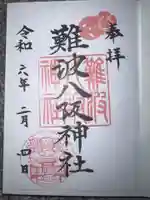 奉拝
難波八阪神社
令和六年二月四日